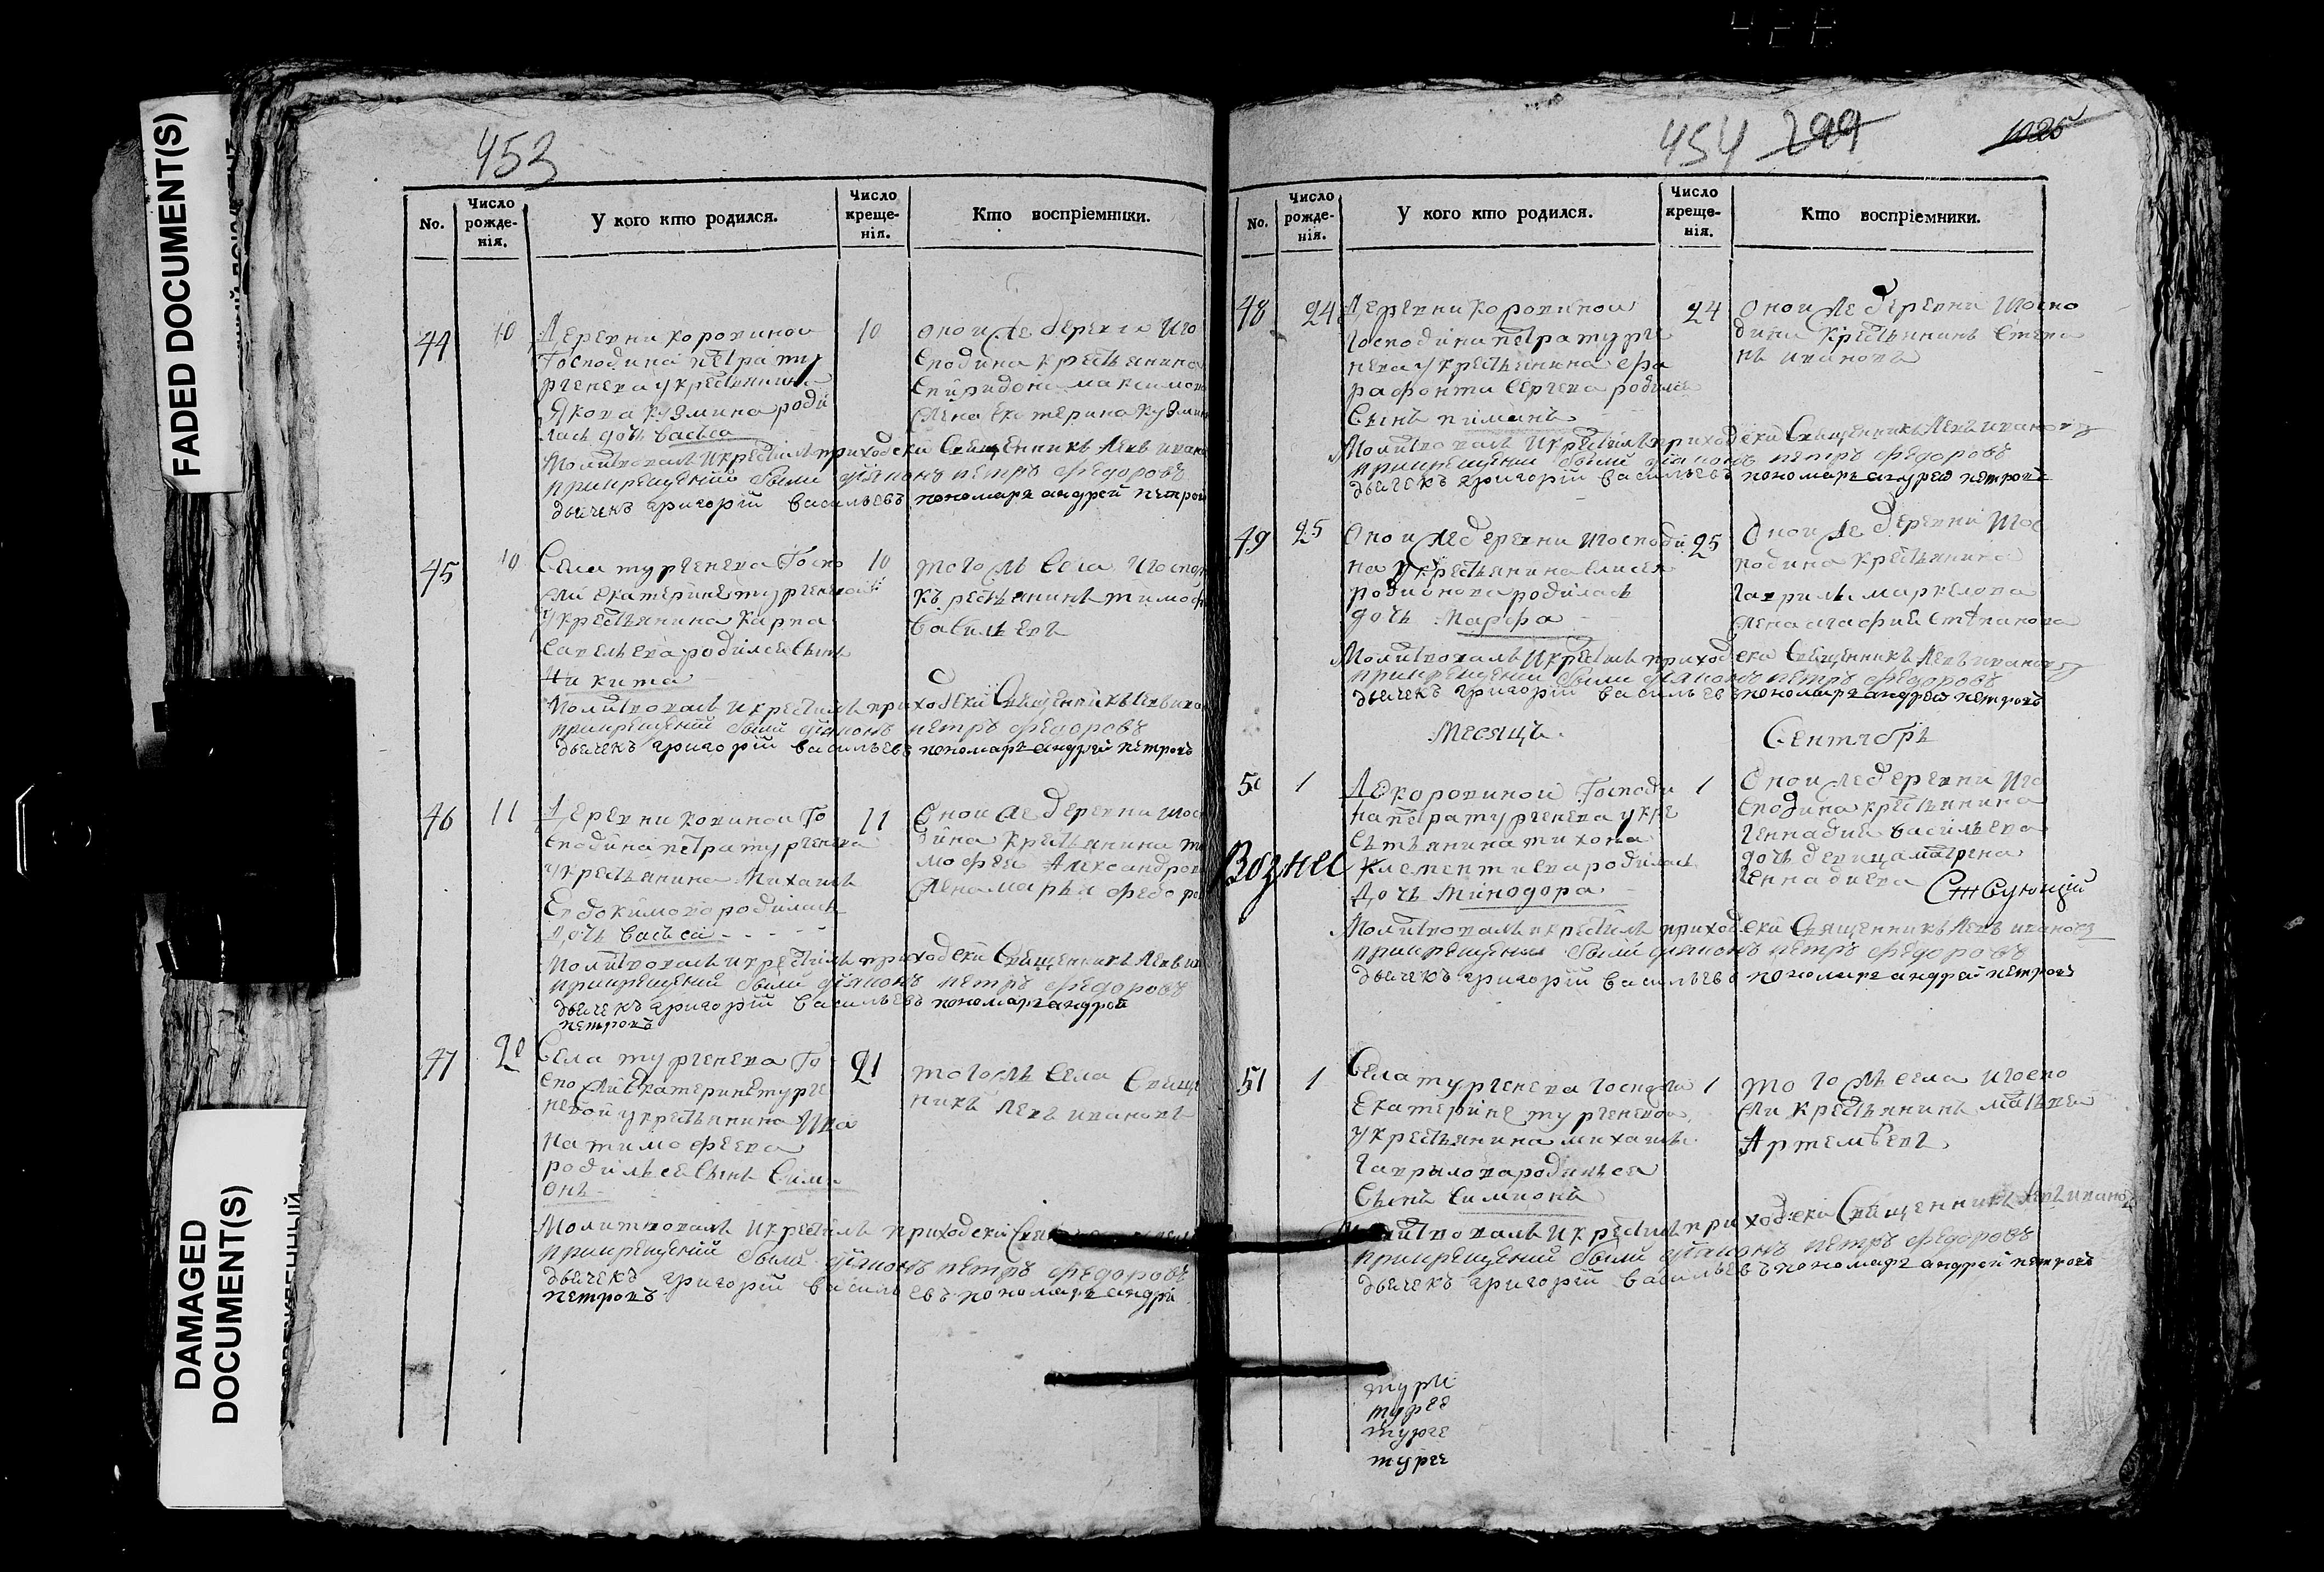 FADED DOCUMENT(S)
DAMAGED
DOCUMENT(S)
453
No.
Число
рожде-
нія.
У кого кто родился.
Число
креще-
нія.
Кто воспріемники.
44
10
Деревни коровиной
Господина петра ту
ргенева укрестьянина
Якова кузмина роди
лась дочь васьса
10
оной же деревни иго
сподина крестьянина
спиридона максимова
жена екатерина кузмин
Молитвовалъ икрестилъ приходски священникъ левъ ивано
прикрещении были діяконъ петръ федоровъ
дьячекъ григорій васильевъ пономарь андрей петров
45
10
Села тургенева госпо
жи екатерине тургеневой
укрестьянина карпа
савельева родился сынъ
никита
10
тогожъ села игоспож
крестьянинъ тимоф
васильевъ
Молитвовалъ икрестилъ приходски священникъ левъ ива
прикрещении были діяконъ петръ федоровъ
дьячекъ григорій васильевъ пономарь андрей петровъ
46
11
Деревни ковиной го
сподина петра тургенева
укрестьянина михаила
Евдокимова родилась
дочь васьса
11
Оной же деревни игос
дина крестьянина ти
мофея Александров
жена марья федоро
Молитвовалъ икрестилъ приходски священникъ левъ ив
прикрещении были діяконъ петръ федоровъ
дьячекъ григорій васильевъ пономарь андрей
петровъ
47
20
Села тургенева го
спожи екатерине турге
невой укрестьянина ива
на тимофеева
родился сынъ сими
онъ
21
тогожъ села священ
никъ левъ ивановъ
Молитвовалъ икрестилъ приходски
прикрещении были діяконъ петръ федоровъ
дьячекъ григорій васильевъ пономарь андрй
петровъ
454 299
No.
Число
рожде-
нія.
У кого кто родился.
Число
креще-
нія.
Кто воспріемники.
48
24
Деревни коровиной
господина петра турге
нева укрестьянина ефа
рафонти сергева родился
сынъ пиманъ
24
оной же деревни игоспо
дина крестьянинъ степа
нъ ивановъ
Молитвовалъ икрестилъ приходски священникъ левъ ивановъ
прикрещении были діяконъ петръ федоровъ
дьячекъ григорій васильевъ пономарь андрей петровъ
49
25
Оной же деревни игосподи
на укрестьянина елисея
родионова родилась
дочь марфа
25
Оной же деревни игос
подина крестьянина
гаврилы маркелова
жена агафия степанова
Молитвовалъ икрестилъ приходски священникъ левъ ивановъ
прикрещении были діяконъ петръ федоровъ
дьячекъ григорій васильевъ пономарь андрей петровъ
Месяцъ. Сентябрь
50
1
Де коровиной господи
на петра тургенева укре
стьянина тихона
клементиева родилась
дочь минодора
1
Оной же деревни иго
сподина крестьянина
геннадия васильева
дочь девица матрена
геннадиева
Вознес
Стсующій
Молитвовалъ икрестилъ приходски священникъ левъ ивановъ
прикрещении были діяконъ петръ федоровъ
дьячекъ григорій васильевъ пономарь андрей петровъ
51
1
Села тургенева госпожи
Екатерине тургеневой
укрестьянина михаилы
гаврылова родился
сынъ симионъ
1
тогожъ села игоспо
жи крестьянинъ матвеи
Артемьевъ
Молитвовалъ икрестилъ приходски священникъ левъ ивановъ
прикрещении были діяконъ петръ федоровъ
дьячекъ григорій васильевъ пономарь андрей петровъ
турге
турге
турге